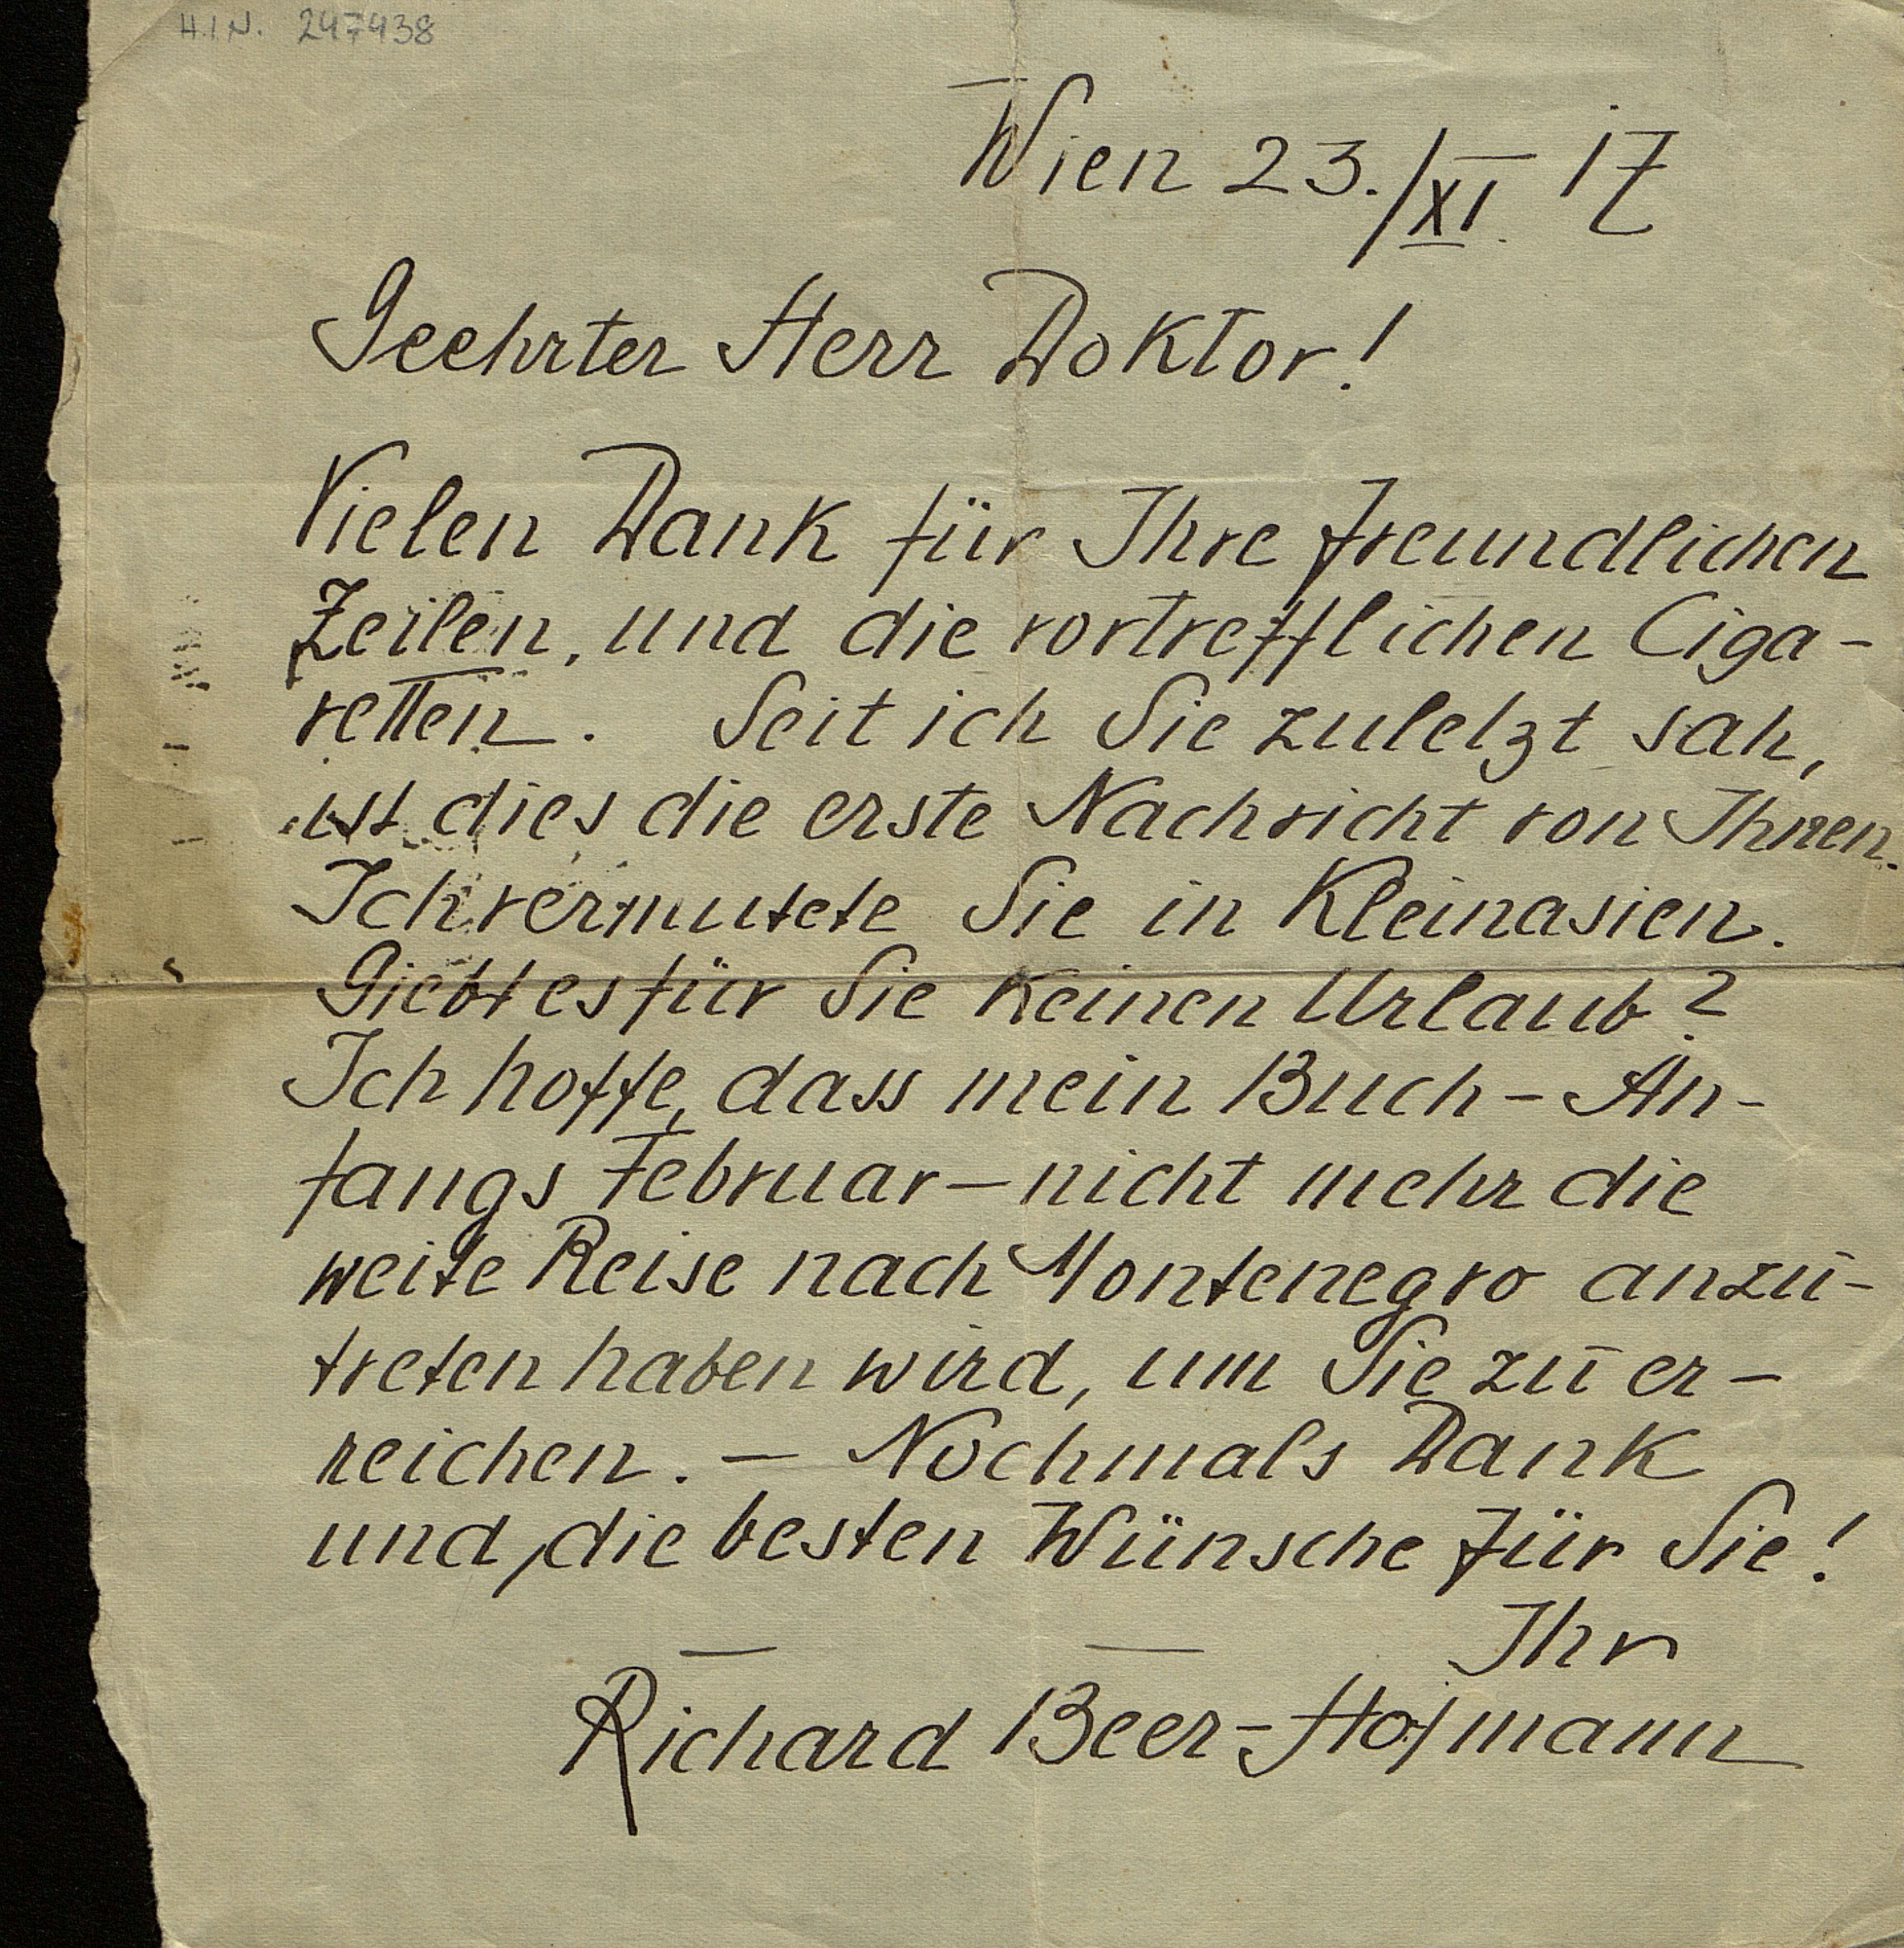 H.I.N. 247438
Wien 23./XI. 17
Geehrter Herr Doktor!
Vielen Dank für Ihre freundlichen
Zeilen, und die vortrefflichen Ciga-
retten. Seit ich Sie zuletzt sah,
ist dies die erste Nachricht von Ihnen.
Ich vermutete Sie in Kleinasien.
Giebt es für Sie keinen Urlaub?
Ich hoffe, dass mein Buch - An-
fangs Februar - nicht mehr die
weite Reise nach Montenegro anzu-
treten haben wird, um Sie zu er-
reichen. - Nochmals Dank
und, die besten Wünsche für Sie!
Ihr
Richard Beer-Hofmann